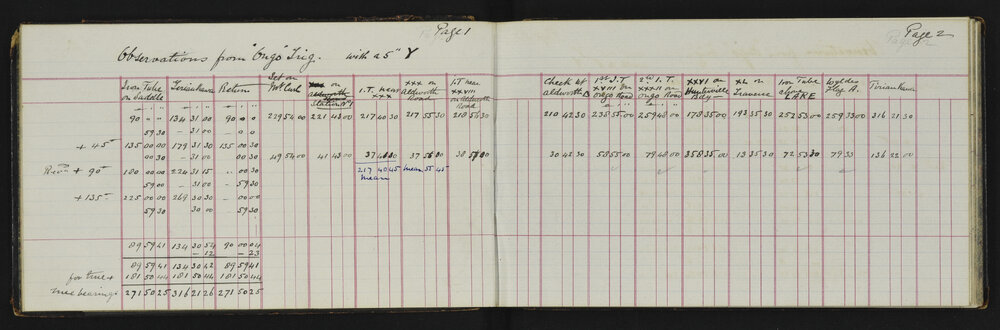 Page 1
Observations from "Ongo" Trig. with a 5" Y
Iron Tube on Saddle | Tirian Kawa | Return | Set on Mt Cash | on Aldworth Station No 1 | I.T. near XXX | XXX on Aldworth Road | I.T near XXVIII on Aldworth Road
90 | 134 31 00 | 90 00 0 | 229 54 00 | 221 43 00 | 217 40 30 | 217 55 30 | 218 56 30
59 30 | – 31 00 | – 0 00
+ 45° | 135 00 00 | 179 31 30 | 135 00 00
00 30 | – 31 00 | 00 30 | 49 54 00 | 41 43 00 | 37 41 00 | 37 56 00 | 38 57 00
+ 90° | 180 00 00 | 224 31 15 | 00 30 | 217 40 45 mean | mean 55 45
59 00 | – 31 00 | – 59 00
+ 135° | 225 00 00 | 269 30 30 | – 00 00
59 30 | 30 00 | 59 30
89 59 41 | 134 30 54 | 90 00 04
– 12 | – 23
89 59 41 | 134 30 42 | 89 59 41
for true + | 181 50 44 | 181 50 44 | 181 50 44
true bearings | 271 50 25 | 316 21 26 | 271 50 25
Page 2
Check at Aldworth B | 1st I.T XXVIII on Ongo Road | 2nd I.T. XXVIII on Ongo Road | XXXI on Huntsville Bdy | XL on Traverse | Iron Tube above LAKE | Wyldes Flag A. | Tirian Kawa
210 42 30 | 238 55 00 | 259 48 00 | 178 35 00 | 193 35 30 | 252 53 00 | 259 33 00 | 316 21 30
30 42 30 | 58 55 00 | 79 48 00 | 358 35 00 | 13 35 30 | 72 53 30 | 79 33 | 136 22 00